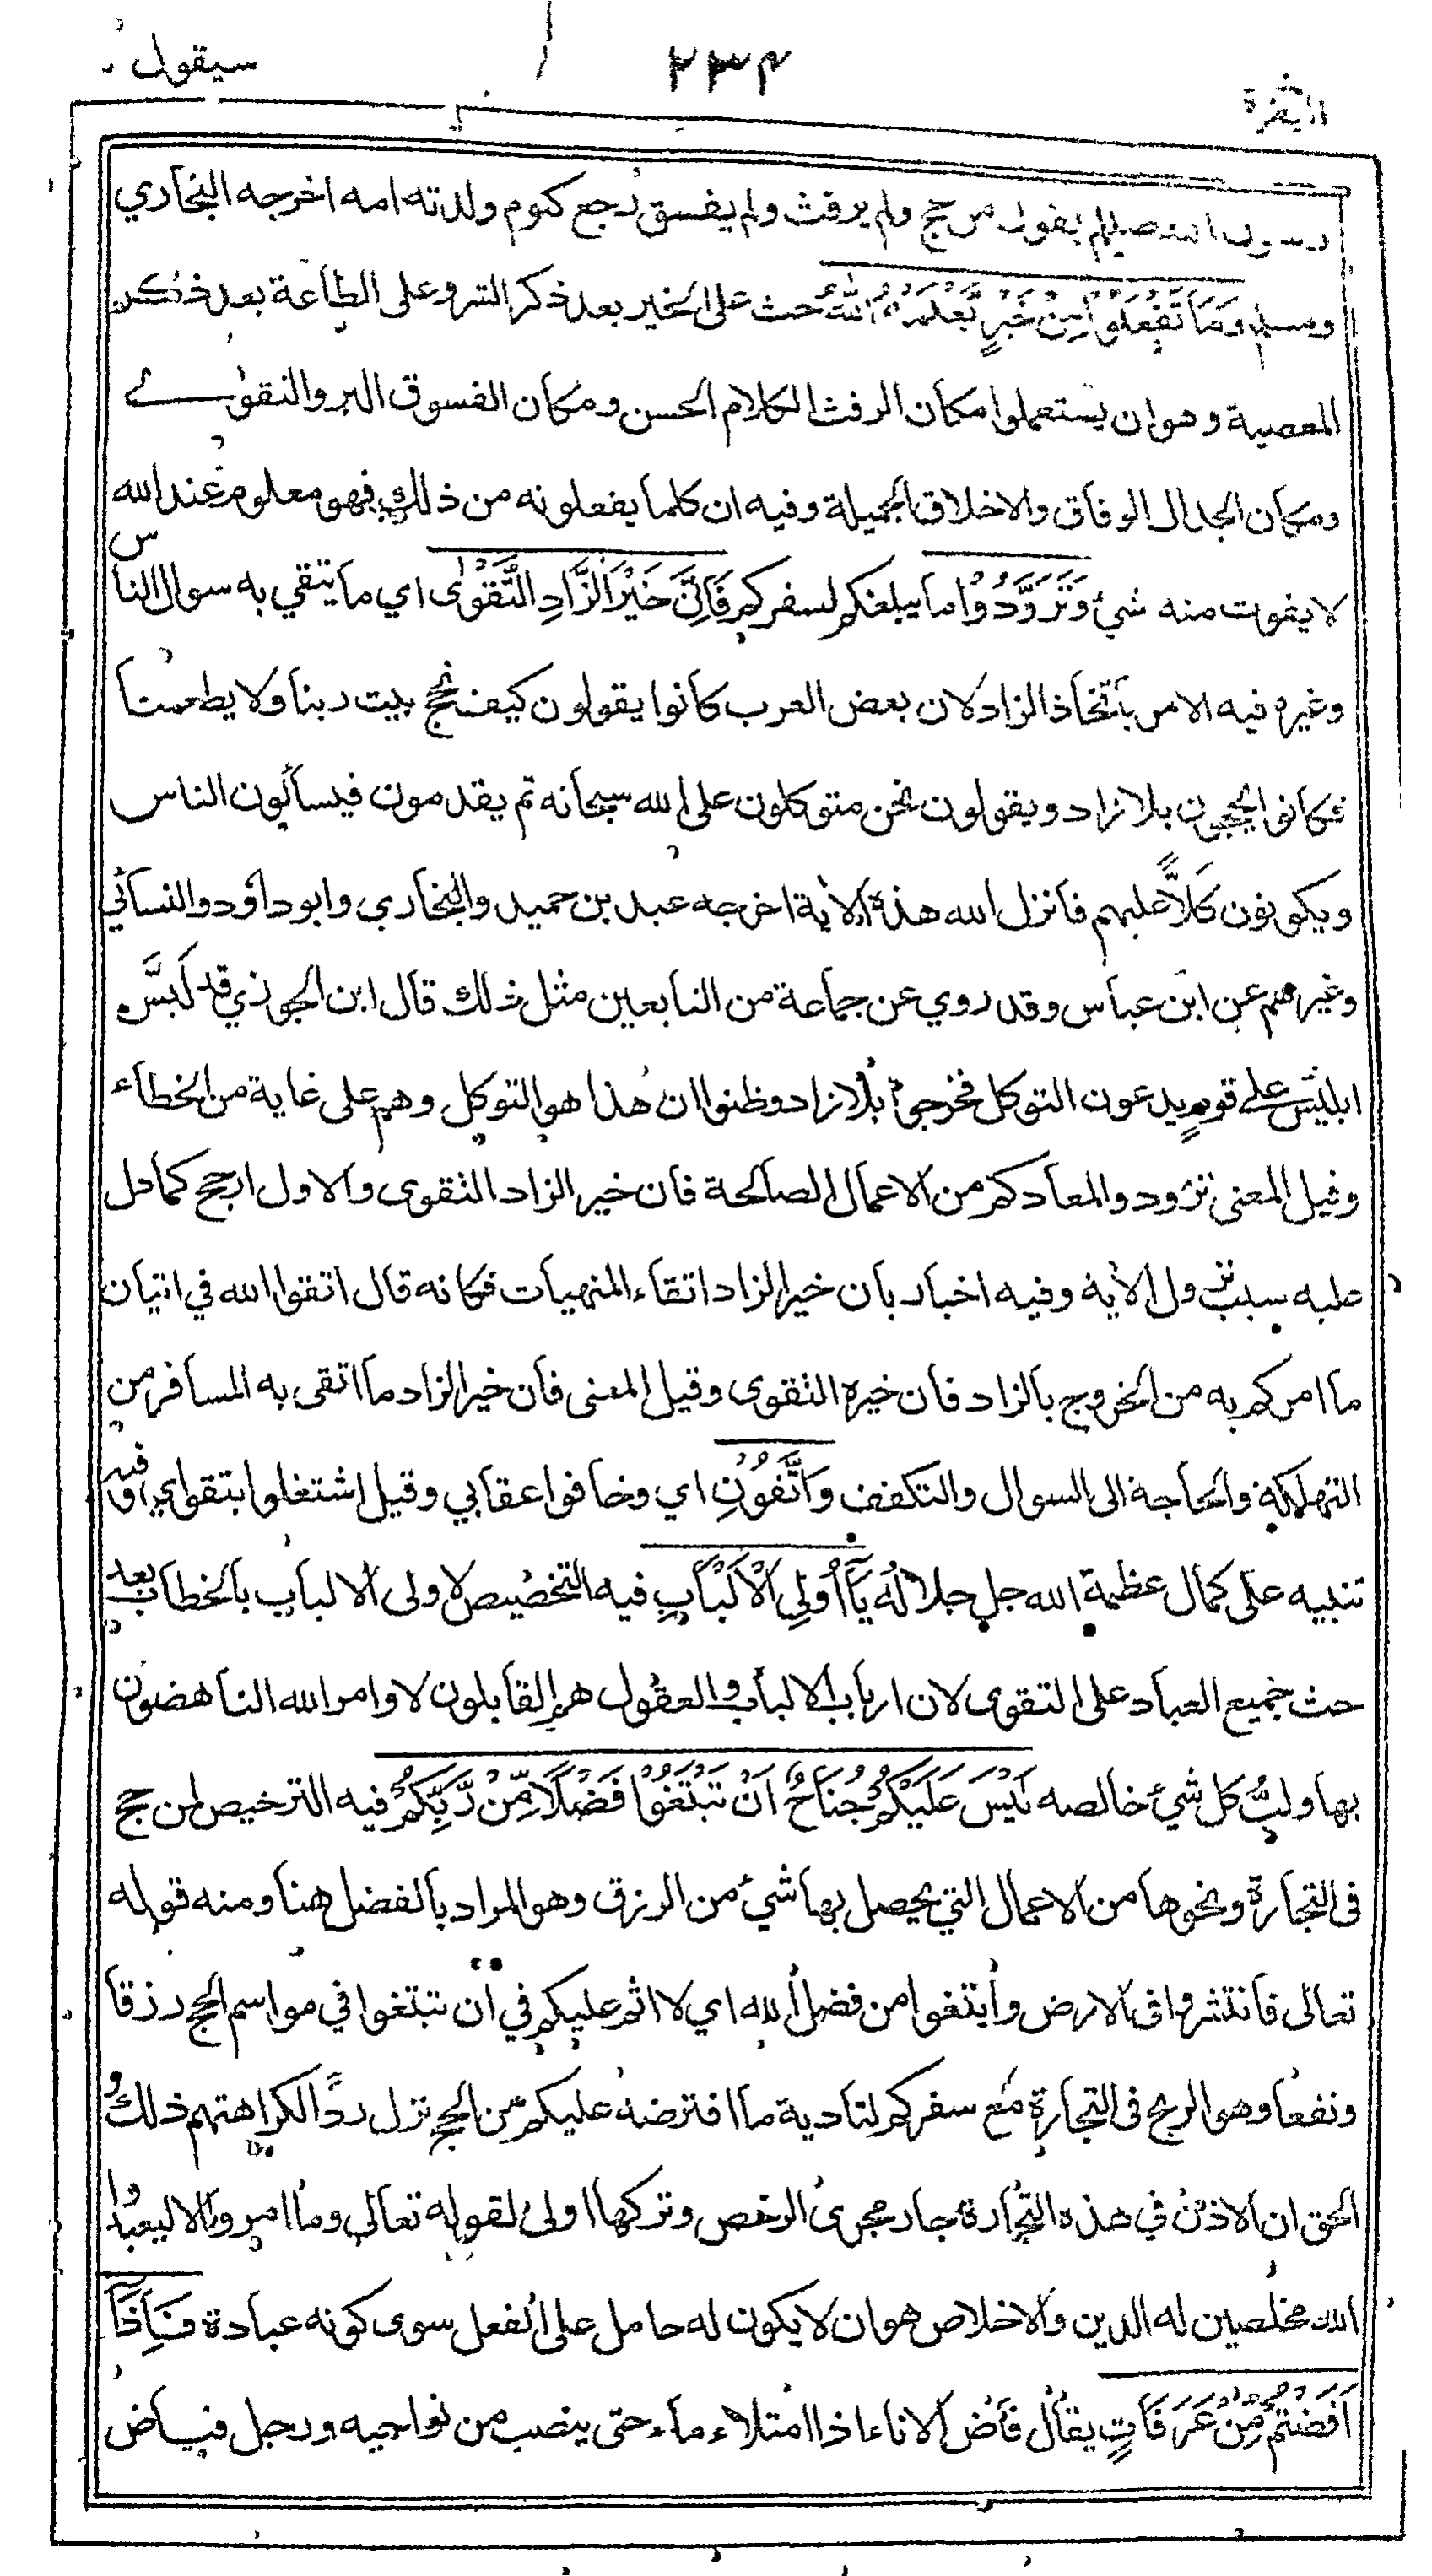 البقرة
٢٣٤
سيقول
رسول الله صللم يقول من حج ولم يرفث ولم يفسق رجع كيوم ولدته امه اخرجه البخاري
ومسلم وَمَا تَفْعَلُوْا مِنْ خَيْرٍ يَّعْلَمْهُ اللهُ حث على الخير بعد ذكر الشر وعلى الطاعة بعد ذكر
المعصية وهو ان يستعملوا مكان الرفث الكلام الحسن ومكان الفسوق البر والتقوى
ومكان الجدال الوفاق والاخلاق الجميلة وفيه ان كلما يفعلونه من ذلك فهو معلوم عند الله
لا يفوت منه شيئ وَتَزَوَّدُوْا ما يبلغكم لسفركم فَاِنَّ خَيْرَ الزَّادِ التَّقْوٰى اي ما يتقي به سوال الناس
وغيره فيه الامر باتخاذ الزاد لان بعض العرب كانوا يقولون كيف نحج بيت ربنا ولا يطعمنا
فكانوا يحجون بلا زاد ويقولون نحن متوكلون على الله سبحانه ثم يقدمون فيسألون الناس
ويكونون كَلًّا عليهم فانزل الله هذه الاٰية اخرجه عبد بن حميد والبخاري وابو داؤد والنسائي
وغيرهم عن ابن عباس وقد روي عن جماعة من التابعين مثل ذلك قال ابن الجوزي قد لَبَّسَ
ابليس على قومٍ يدعون التوكل فخرجوا بلا زاد وظنوا ان هذا هو التوكل وهم على غاية من الخطاء
وقيل المعنى تزودوا لمعادكم من الاعمال الصالحة فان خير الزاد التقوى والاول ارجح كما دل
عليه سبب نزول الاٰية وفيه اخبار بان خير الزاد اتقاء المنهيات فكانه قال اتقوا الله في اتيان
ما امركم به من الخروج بالزاد فان خيره التقوى وقيل المعنى فان خير الزاد ما اتقى به المسافر من
التهلكة والحاجة الى السوال والتكفف وَاتَّقُوْنِ اي وخافوا عقابي وقيل اشتغلوا بتقواي وفيه
تنبيه على كمال عظمة الله جل جلاله يٰٓاُولِى الْاَلْبَابِ فيه التخصيص لاولى الالباب بالخطاب بعد
حث جميع العباد على التقوى لان ارباب الالباب والعقول هم القابلون لاوامر الله الناهضون
بها ولبُّ كل شيئ خالصه لَيْسَ عَلَيْكُمْ جُنَاحٌ اَنْ تَبْتَغُوْا فَضْلًا مِّنْ رَّبِّكُمْ فيه الترخيص لمن حج
فى التجارة ونحوها من الاعمال التي يحصل بها شيئ من الرزق وهو المراد بالفضل هنا ومنه قوله
تعالى فانتشروا فى الارض وابتغوا من فضل الله اي لا اثم عليكم في ان تبتغوا في مواسم الحج رزقا
ونفعا وهو الربح فى التجارة مع سفركم لتادية ما افترضه عليكم من الحج نزل ردًّا لكراهتهم ذلك و
الحق ان الاذن في هذه التجارة جار مجرى الرخص وتركها اولى لقوله تعالى وما امروا الا ليعبدوا
الله مخلصين له الدين والاخلاص هو ان لا يكون له حامل على الفعل سوى كونه عبادة فَاِذَآ
اَفَضْتُمْ مِّنْ عَرَفَاتٍ يقال فاض الاناء اذا امتلاء ماء حتى ينصب من نواحيه ورجل فياض